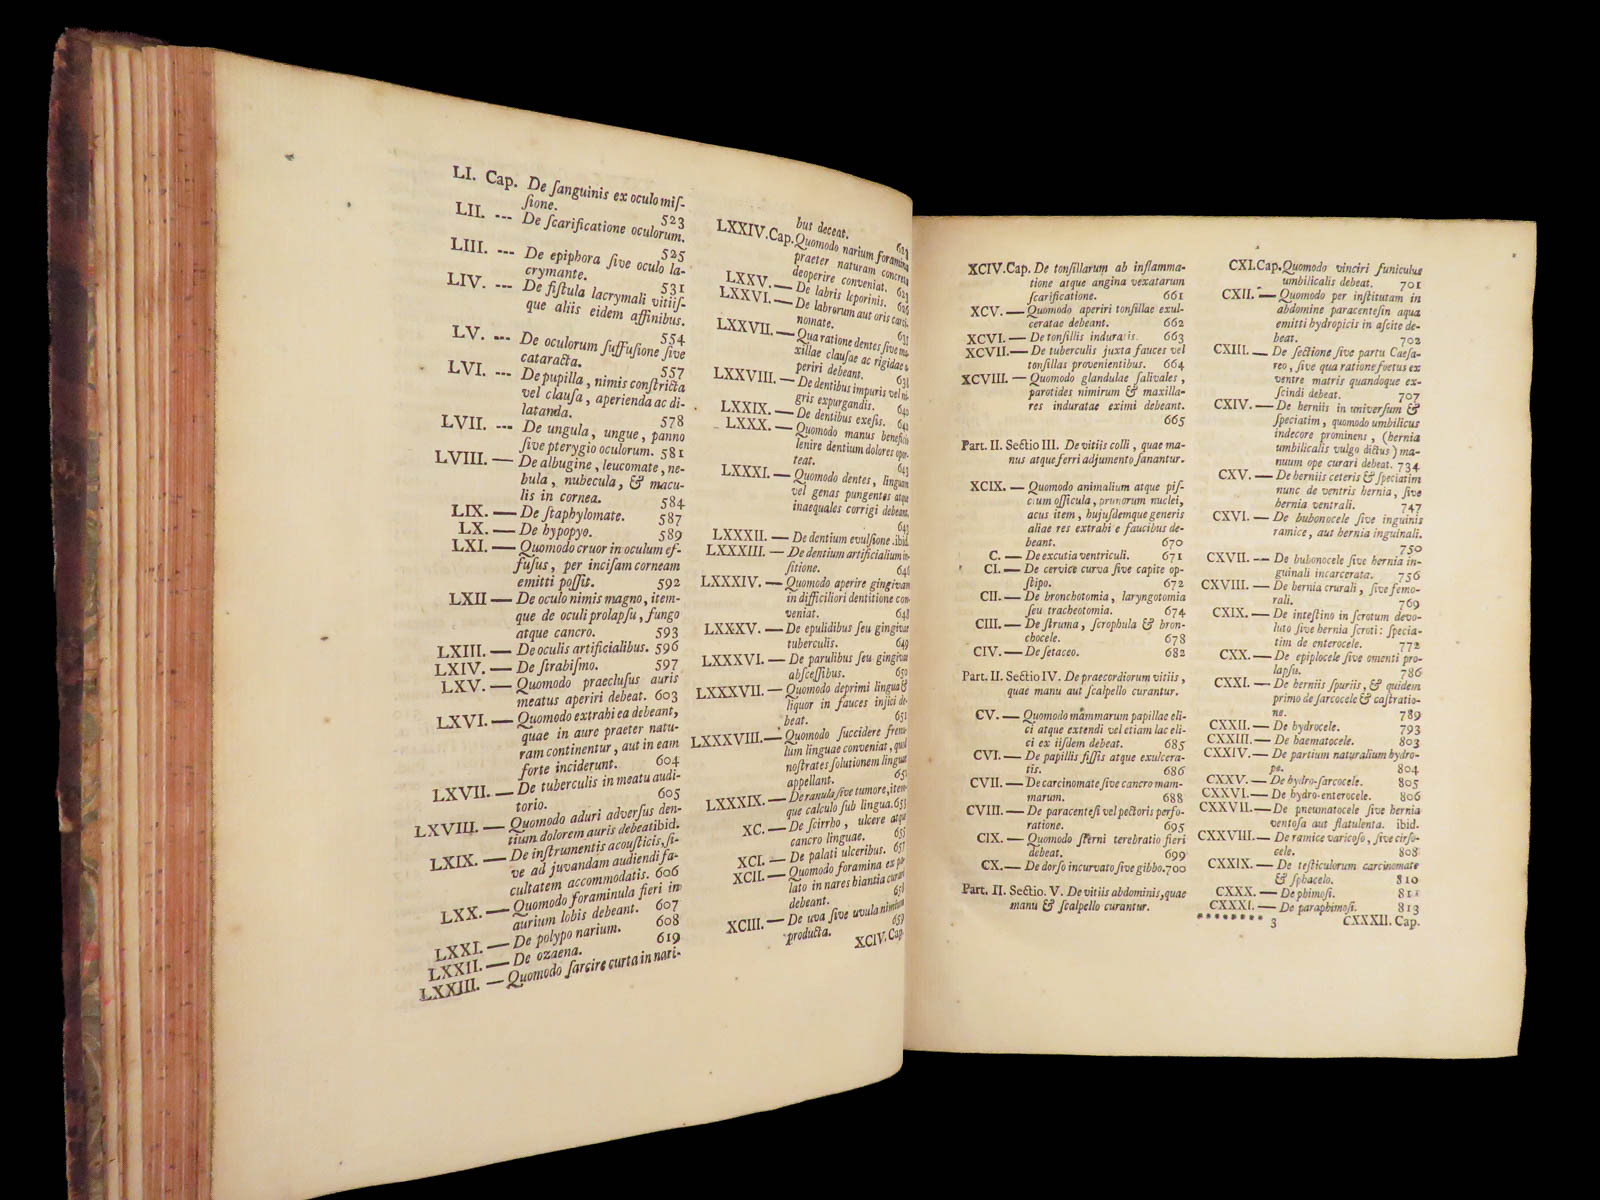 LI. Cap. De ſanguinis ex oculo miſ-
ſione. 523
LII. --- De ſcarificatione oculorum.
525
LIII. --- De epiphora ſive oculo la-
crymante. 531
LIV. --- De fiſtula lacrymali vitiiſ-
que aliis eidem affinibus.
554
LV. --- De oculorum ſuffuſione ſive
cataracta. 557
LVI. --- De pupilla, nimis conſtricta
vel clauſa, aperienda ac di-
latanda. 578
LVII. --- De ungula, ungue, panno
ſive pterygio oculorum. 581
LVIII. — De albugine, leucomate, ne-
bula, nubecula, & macu-
lis in cornea. 584
LIX. — De ſtaphylomate. 587
LX. — De hypopyo. 589
LXI. — Quomodo cruor in oculum ef-
fuſus, per inciſam corneam
emitti poſſit. 592
LXII — De oculo nimis magno, item-
que de oculi prolapſu, fungo
atque cancro. 593
LXIII. — De oculis artificialibus. 596
LXIV. — De ſtrabiſmo. 597
LXV. — Quomodo praecluſus auris
meatus aperiri debeat. 603
LXVI. — Quomodo extrahi ea debeant,
quae in aure praeter natu-
ram continentur, aut in eam
forte inciderunt. 604
LXVII. — De tuberculis in meatu audi-
torio. 605
LXVIII. — Quomodo aduri adverſus den-
tium dolorem auris debeat ibid.
LXIX. — De inſtrumentis acouſticis, ſi-
ve ad juvandam audiendi fa-
cultatem accommodatis. 606
LXX. — Quomodo foraminula fieri in
aurium lobis debeant. 607
LXXI. — De polypo narium. 608
LXXII. — De ozaena. 619
LXXIII. — Quomodo ſarcire curta in nari-
bus deceat.
LXXIV. Cap. Quomodo narium foramina
praeter naturam concreta
deoperire conveniat. 623
LXXV. — De labris leporinis. 626
LXXVI. — De labrorum aut oris carci-
nomate.
LXXVII. — Qua ratione dentes ſive ma-
xillae clauſae ac rigidae a-
periri debeant. 638
LXXVIII. — De dentibus impuris vel ni-
gris expurgandis. 640
LXXIX. — De dentibus exeſis. 642
LXXX. — Quomodo manus beneficio
lenire dentium dolores opor-
teat. 643
LXXXI. — Quomodo dentes, linguam
vel genas pungentes atque
inaequales corrigi debeant.
645
LXXXII. — De dentium evulſione. ibid.
LXXXIII. — De dentium artificialium in-
ſitione. 646
LXXXIV. — Quomodo aperire gingivam
in difficiliori dentitione con-
veniat. 648
LXXXV. — De epulidibus ſeu gingivae
tuberculis. 649
LXXXVI. — De parulibus ſeu gingivae
abſceſſibus. 650
LXXXVII. — Quomodo deprimi lingua &
liquor in fauces injici de-
beat. 651
LXXXVIII. — Quomodo ſuccidere frenu-
lum linguae conveniat, quod
noſtrates ſolutionem linguae
appellant.
LXXXIX. — De ranula ſive tumore, item-
que calculo ſub lingua. 653
XC. — De ſcirrho, ulcere atque
cancro linguae. 655
XCI. — De palati ulceribus. 657
XCII. — Quomodo foramina ex pa-
lato in nares hiantia curari
debeant. 658
XCIII. — De uva ſive uvula nimium
producta. 659
XCIV. Cap.
XCIV. Cap. De tonſillarum ab inflamma-
tione atque angina vexatarum
ſcarificatione. 661
XCV. — Quomodo aperiri tonſillae exul-
ceratae debeant. 662
XCVI. — De tonſillis induratis. 663
XCVII. — De tuberculis juxta fauces vel
tonſillas provenientibus. 664
XCVIII. — Quomodo glandulae ſalivales,
parotides nimirum & maxilla-
res induratae eximi debeant.
665
Part. II. Sectio III. De vitiis colli, quae ma-
nus atque ferri adjumento ſanantur.
XCIX. — Quomodo animalium atque piſ-
cium oſſicula, prunorum nuclei,
acus item, hujuſdemque generis
aliae res extrahi e faucibus de-
beant. 670
C. — De excutia ventriculi. 671
CI. — De cervice curva ſive capite op-
ſtipo. 672
CII. — De bronchotomia, laryngotomia
ſeu tracheotomia. 674
CIII. — De ſtruma, ſcrophula & bron-
chocele. 678
CIV. — De ſetaceo. 682
Part. II. Sectio IV. De praecordiorum vitiis,
quae manu aut ſcalpello curantur.
CV. — Quomodo mammarum papillae eli-
ci atque extendi vel etiam lac eli-
ci ex iiſdem debeat. 685
CVI. — De papillis fiſſis atque exulcera-
tis. 686
CVII. — De carcinomate ſive cancro mam-
marum. 688
CVIII. — De paracenteſi vel pectoris perfo-
ratione. 695
CIX. — Quomodo ſterni terebratio fieri
debeat. 699
CX. — De dorſo incurvato ſive gibbo. 700
Part. II. Sectio. V. De vitiis abdominis, quae
manu & ſcalpello curantur.
CXI. Cap. Quomodo vinciri funiculus
umbilicalis debeat. 701
CXII. — Quomodo per inſtitutam in
abdomine paracenteſin aqua
emitti hydropicis in aſcite de-
beat. 702
CXIII. — De ſectione ſive partu Caeſa-
reo, ſive qua ratione foetus ex
ventre matris quandoque ex-
ſcindi debeat. 707
CXIV. — De herniis in univerſum &
ſpeciatim, quomodo umbilicus
indecore prominens, (hernia
umbilicalis vulgo dictus) ma-
nuum ope curari debeat. 734
CXV. — De herniis ceteris & ſpeciatim
nunc de ventris hernia, ſive
hernia ventrali. 747
CXVI. — De bubonocele ſive inguinis
ramice, aut hernia inguinali.
750
CXVII. -- De bubonocele ſive hernia in-
guinali incarcerata. 756
CXVIII. — De hernia crurali, ſive femo-
rali. 769
CXIX. — De inteſtino in ſcrotum devo-
luto ſive hernia ſcroti: ſpecia-
tim de enterocele. 772
CXX. — De epiplocele ſive omenti pro-
lapſu. 786
CXXI. — De herniis ſpuriis, & quidem
primo de ſarcocele & caſtratio-
ne. 789
CXXII. — De hydrocele. 793
CXXIII. — De haematocele. 803
CXXIV. — De partium naturalium hydro-
pe. 804
CXXV. — De hydro-ſarcocele. 805
CXXVI. — De hydro-enterocele. 806
CXXVII. — De pneumatocele ſive hernia
ventoſa aut flatulenta. ibid.
CXXVIII. — De ramice varicoſo, ſive cirſo-
cele. 808
CXXIX. — De teſticulorum carcinomate
& ſphacelo. 810
CXXX. — De phimoſi. 811
CXXXI. — De paraphimoſi. 813
******** 3 CXXXII. Cap.